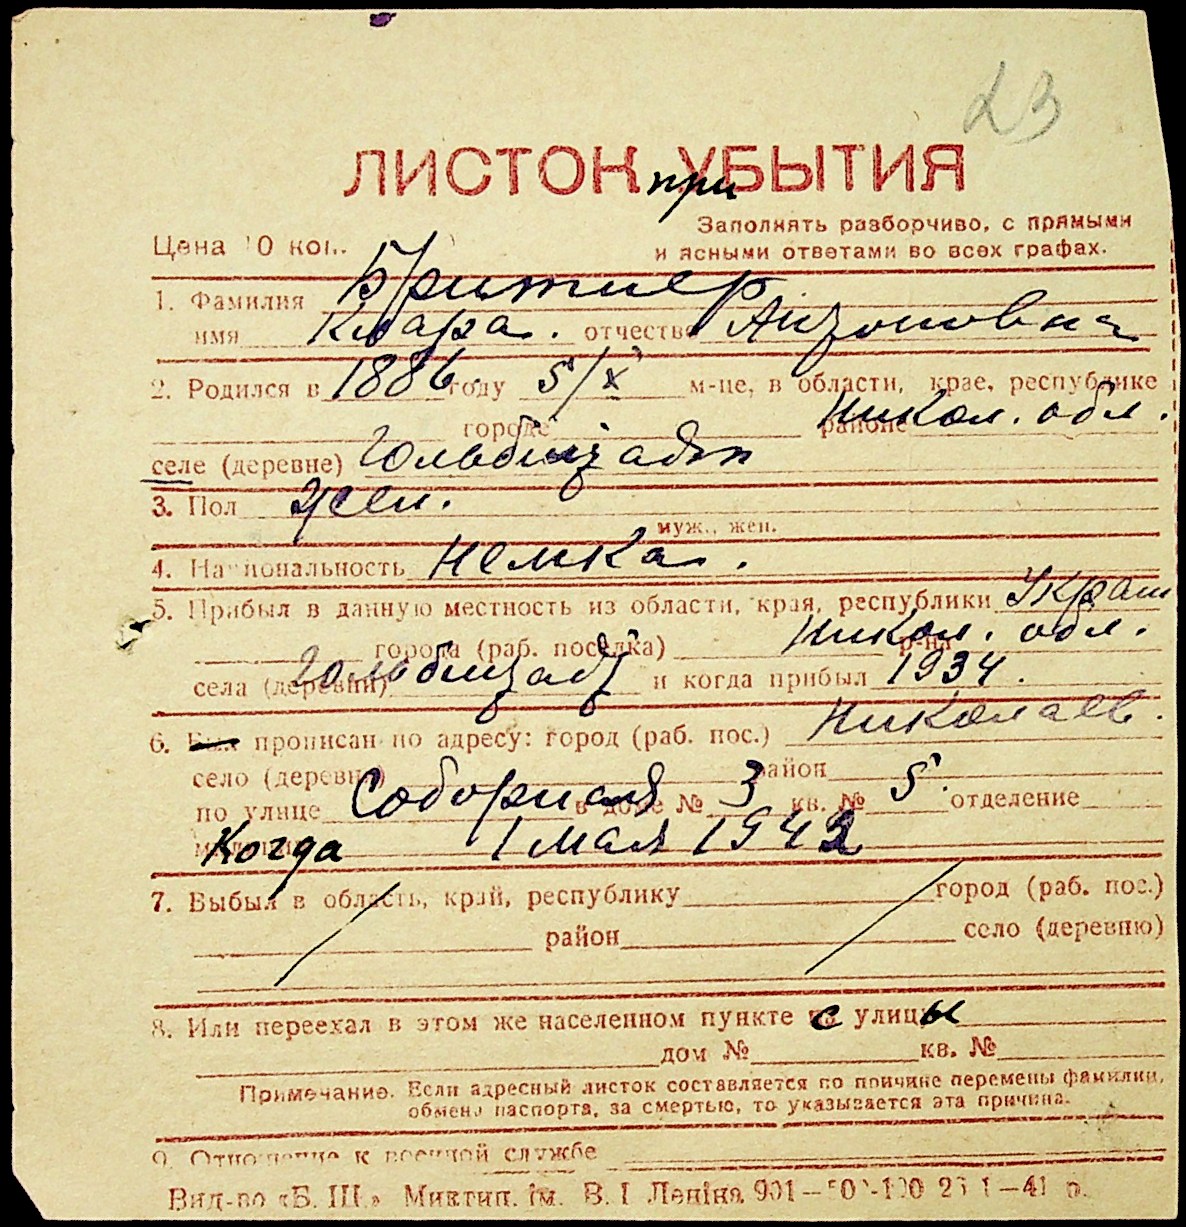 23
ЛИСТОК при УБЫТИЯ
Заполнять разборчиво, с прямыми
Цена 10 коп. и ясными ответами во всех графах.
1. Фамилия Бритнер
имя Клара. отчество
2. Родился в 1886 году 5/X м-це, в области, крае, республике
городе районе Никол. обл.
селе (деревне)
3. Пол жен.
муж., жен.
4. Национальность немка.
5. Прибыл в данную местность из области, края, республики Украин
города (раб. поселка) р-на Никол. обл.
села (деревни) и когда прибыл 1934.
6. Был прописан по адресу: город (раб. пос.) Николаев.
село (деревня) район
по улице Соборная в доме № 3 кв. № 5. отделение
Когда 1 мая 1942
7. Выбыл в область, край, республику город (раб. пос.)
район село (деревню)
8. Или переехал в этом же населенном пункте с улицы
дом № кв. №
Примечание. Если адресный листок составляется по причине перемены фамилии,
обмена паспорта, за смертью, то указывается эта причина.
9. Отношение к военной службе
Вид-во «Б. Ш.» Миктип. ім. В. І Леніна 901